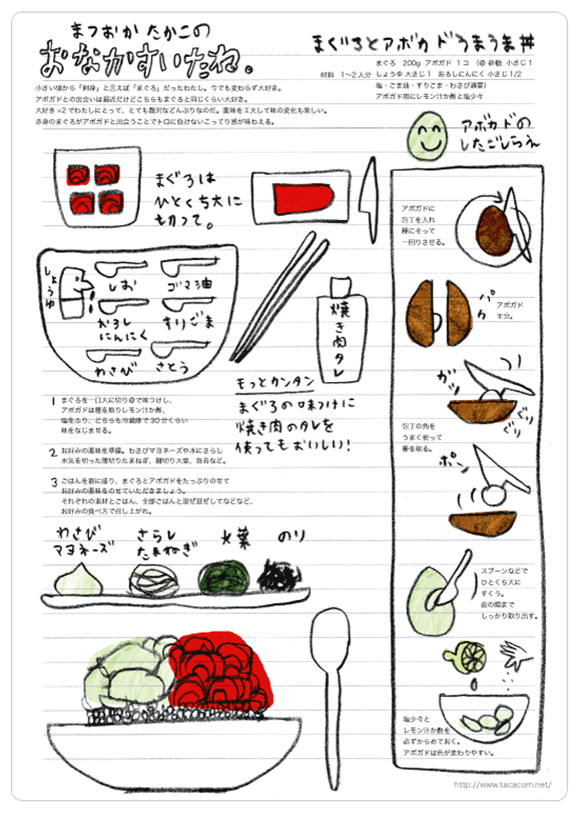 まつおか たかこの
おなかすいたね。
まぐろとアボカドうまうま丼
材料 1〜2人分
まぐろ 200g アボカド 1コ (@ 砂糖 小さじ1
しょうゆ 大さじ1 おろしにんにく 小さじ1/2
塩・ごま油・すりごま・わさび適量)
アボカド用にレモン汁か酢と塩少々
小さい頃から「刺身」と言えば「まぐろ」だったわたし。今でも変わらず大好き。
アボカドとの出会いは最近だけどこちらもまぐろと同じくらい大好き。
大好き×2でわたしにとって、とても贅沢などんぶりなのだ。薬味を工夫して味の変化も楽しい。
赤身のまぐろがアボカドと出会うことでトロに負けないこってり感が味わえる。
まぐろは
ひとくち大に
もカって。
しょうゆ
しお
ゴマ油
おろし
にんにく
すりごま
わさび
さとう
焼き肉タレ
もっとカンタン
まぐろの味つけに
焼き肉のタレを
使ってもおいしい!
1 まぐろを一口大に切り@で味つけし、
アボカドは種を取りレモン汁か酢、
塩をふり、どちらも冷蔵庫で30分くらい
味をなじませる。
2 お好みの薬味を準備。わさびマヨネーズや水にさらし
水気を切った薄切りたまねぎ、細切り大葉、海苔など。
3 ごはんを器に盛り、まぐろとアボカドをたっぷりのせて
お好みの薬味をのせていただきましょう。
それぞれの素材とごはん、全部ごはんと混ぜ混ぜしてなどなど、
お好みの食べ方で召し上がれ。
わさび
マヨネーズ
さらし
たまねぎ
大葉
のり
アボカドの
したごしらえ
アボカドに
包丁を入れ
種にそって
一回りさせる。
パカ
アボカド
半分。
ガツ
ぐり
ぐり
包丁の角を
うまく使って
種を取る。
ポン
スプーンなどで
ひとくち大に
すくう。
皮の際まで
しっかり取り出す。
塩少々と
レモン汁か酢を
必ずからめておく。
アボカドは色が変わりやすい。
http://www.tacacom.net/